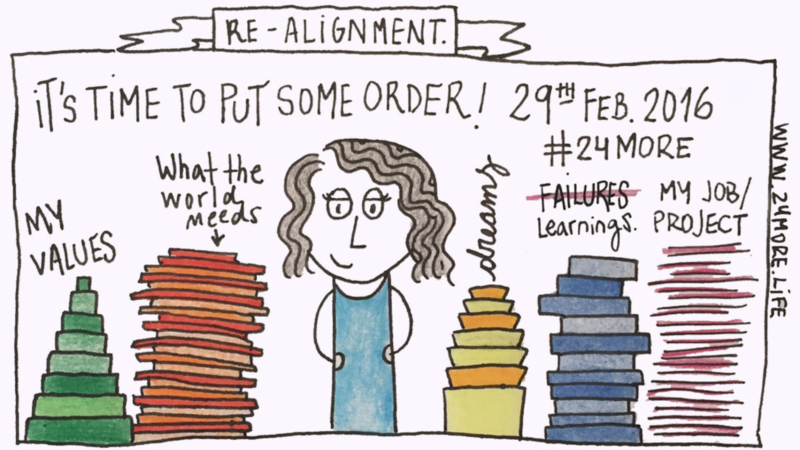 RE-ALIGNMENT.
iT'S TiME TO PUT SOME ORDER! 29TH FEB. 2016
#24MORE
MY
VALUES
What the
world
needs
dreams
FAiLURES
Learnings.
MY JOB/
PROJECT
WWW.24MORE.LiFE